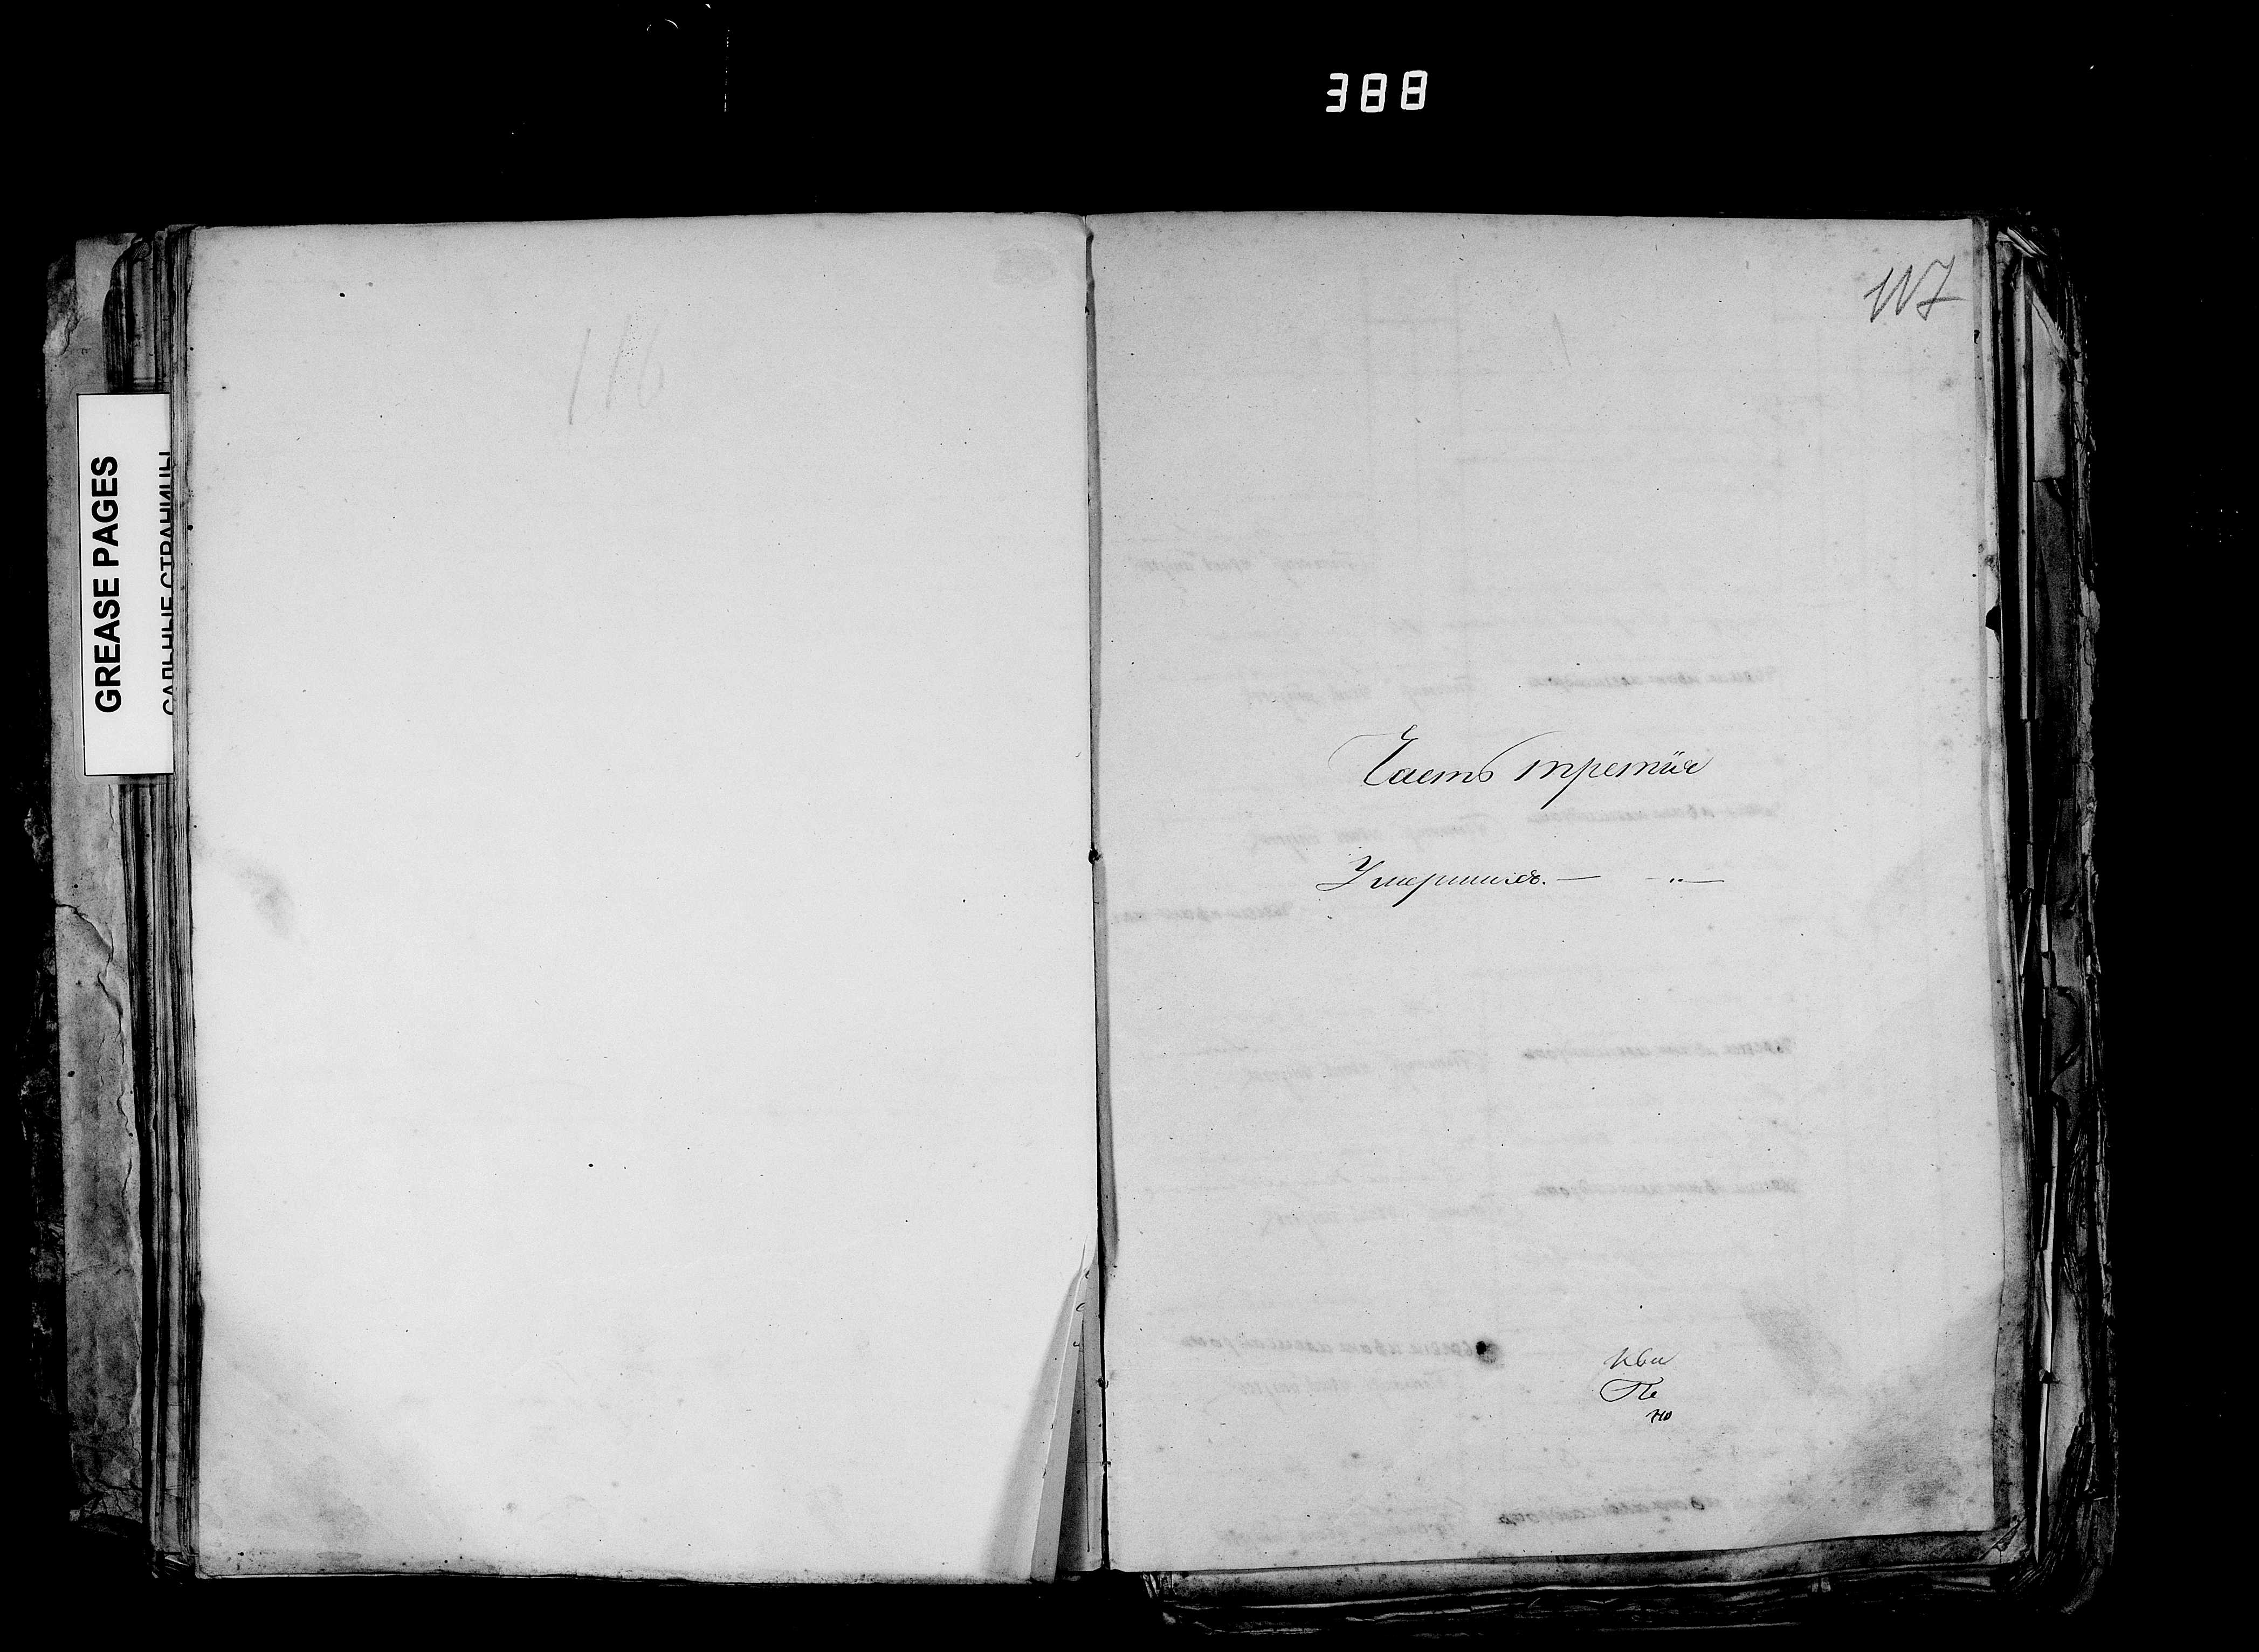 388
GREASE PAGES
САЛЕННЫЕ СТРАНИЦЫ
116
117
Часть третія
Умершихъ.